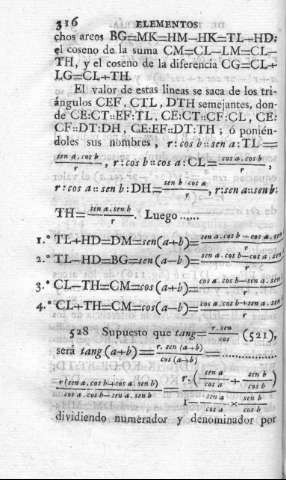 316 ELEMENTOS
chos arcos BG=MK=HM-HK=TL+HD:
el coseno de la suma CM=CL-LM=CL-
TH, y el coseno de la diferencia CG=CL+
LG=CL+TH.
El valor de estas lineas se saca de los tri-
ángulos CEF, CTL, DTH semejantes, don-
de CE:CT::EF:TL, CE:CT::CF:CL, CE:
CF::DT:DH, CE:EF::DT:TH; ó ponién-
doles sus nombres, r:cos b::sen a:TL=
sen a.cos b/r, r:cos b::cos a:CL=cos a.cos b/r,
r:cos a::sen b:DH=sen b.cos a/r, r:sen a::sen b:
TH=sen a.sen b/r. Luego ......
1.º TL+HD=DM=sen(a+b)=sen a.cos b+cos a.sen b/r
2.º TL-HD=BG=sen(a-b)=sen a.cos b-cos a.sen b/r
3.º CL-TH=CM=cos(a+b)=cos a.cos b-sen a.sen b/r
4.º CL+TH=CM=cos(a-b)=cos a.cos b+sen a.sen b/r
528 Supuesto que tang=r.sen/cos (521),
será tang(a+b)=r.sen(a+b)/cos(a+b)=..............
r(sen a.cos b+cos a.sen b)/cos a.cos b-sen a.sen b = r:(sen a/cos a+sen b/cos b)/1-sen a/cos a×sen b/cos b
dividiendo numerador y denominador por